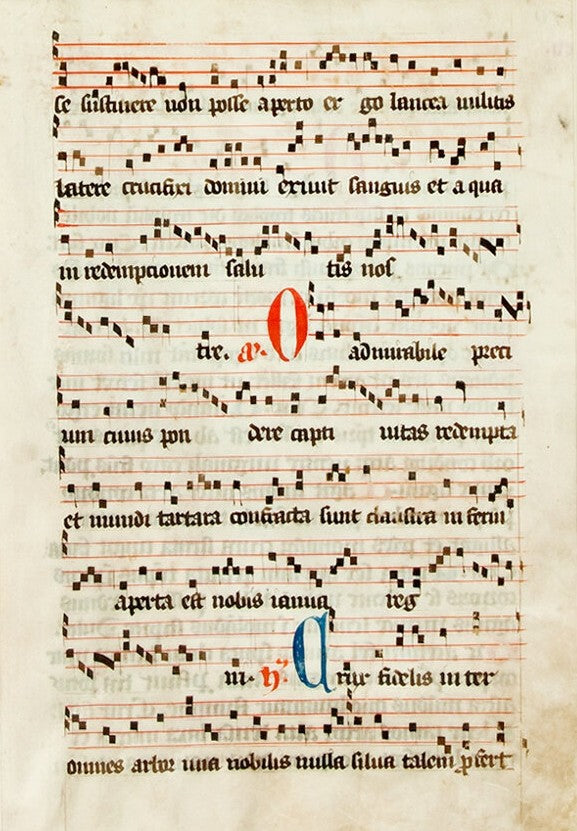 se sustinere non posse aperto er go lancea militis
latere crucifixi domini exivit sanguis et aqua
in redemptionem salu tis nos
tre. a. O admirabile preci
um cuius pon dere capti vitas redempta
et mundi tartara confracta sunt claustra in ferni
aperta est nobis ianua reg
ni. hy. Crux fidelis inter
omnes arbor una nobilis nulla silva talem profert